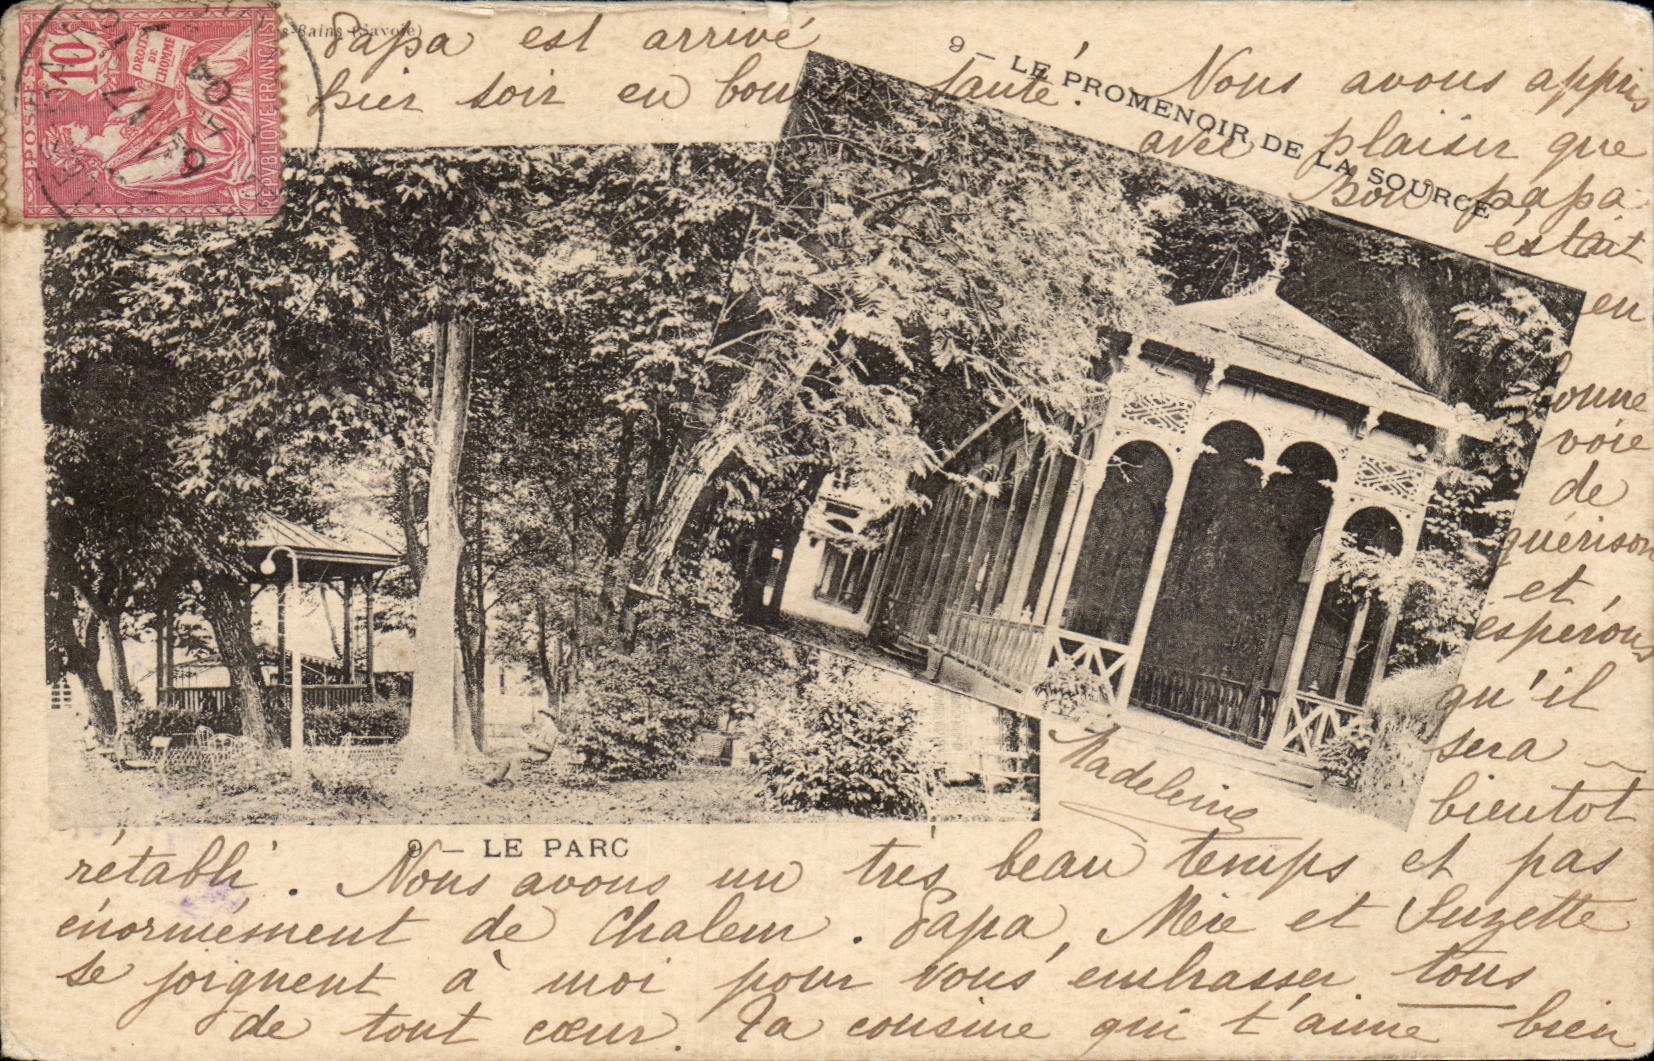 s-Bains (Savoie)
10
POSTES
DROITS
DE
L'HOMME
REPUBLIQUE FRANÇAISE
Papa est arrivé
hier soir en bonne santé.
9 - LE PROMENOIR DE LA SOURCE
Nous avons appris
avec plaisir que
Bon papa
était
en
bonne
voie
de
guérison
et
espérons
qu'il
sera
bientot
Madeleine
9 - LE PARC
rétabli. Nous avons un très beau temps et pas
énormément de Chaleur. Papa, Mère et Suzette
se joignent à moi pour vous embrasser tous
de tout cœur. Ta cousine qui t'aime bien